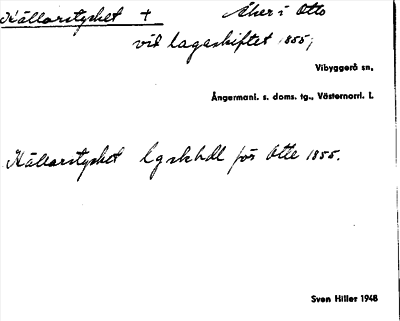 Källarstycket + Åker i Otto
vid lagaskiftet 1855;
Vibyggerå sn,
Ångermanl. s. doms. tg., Västernorrl. l.
Källarstycket Lgskhdl för Otte 1855.
Sven Hiller 1948